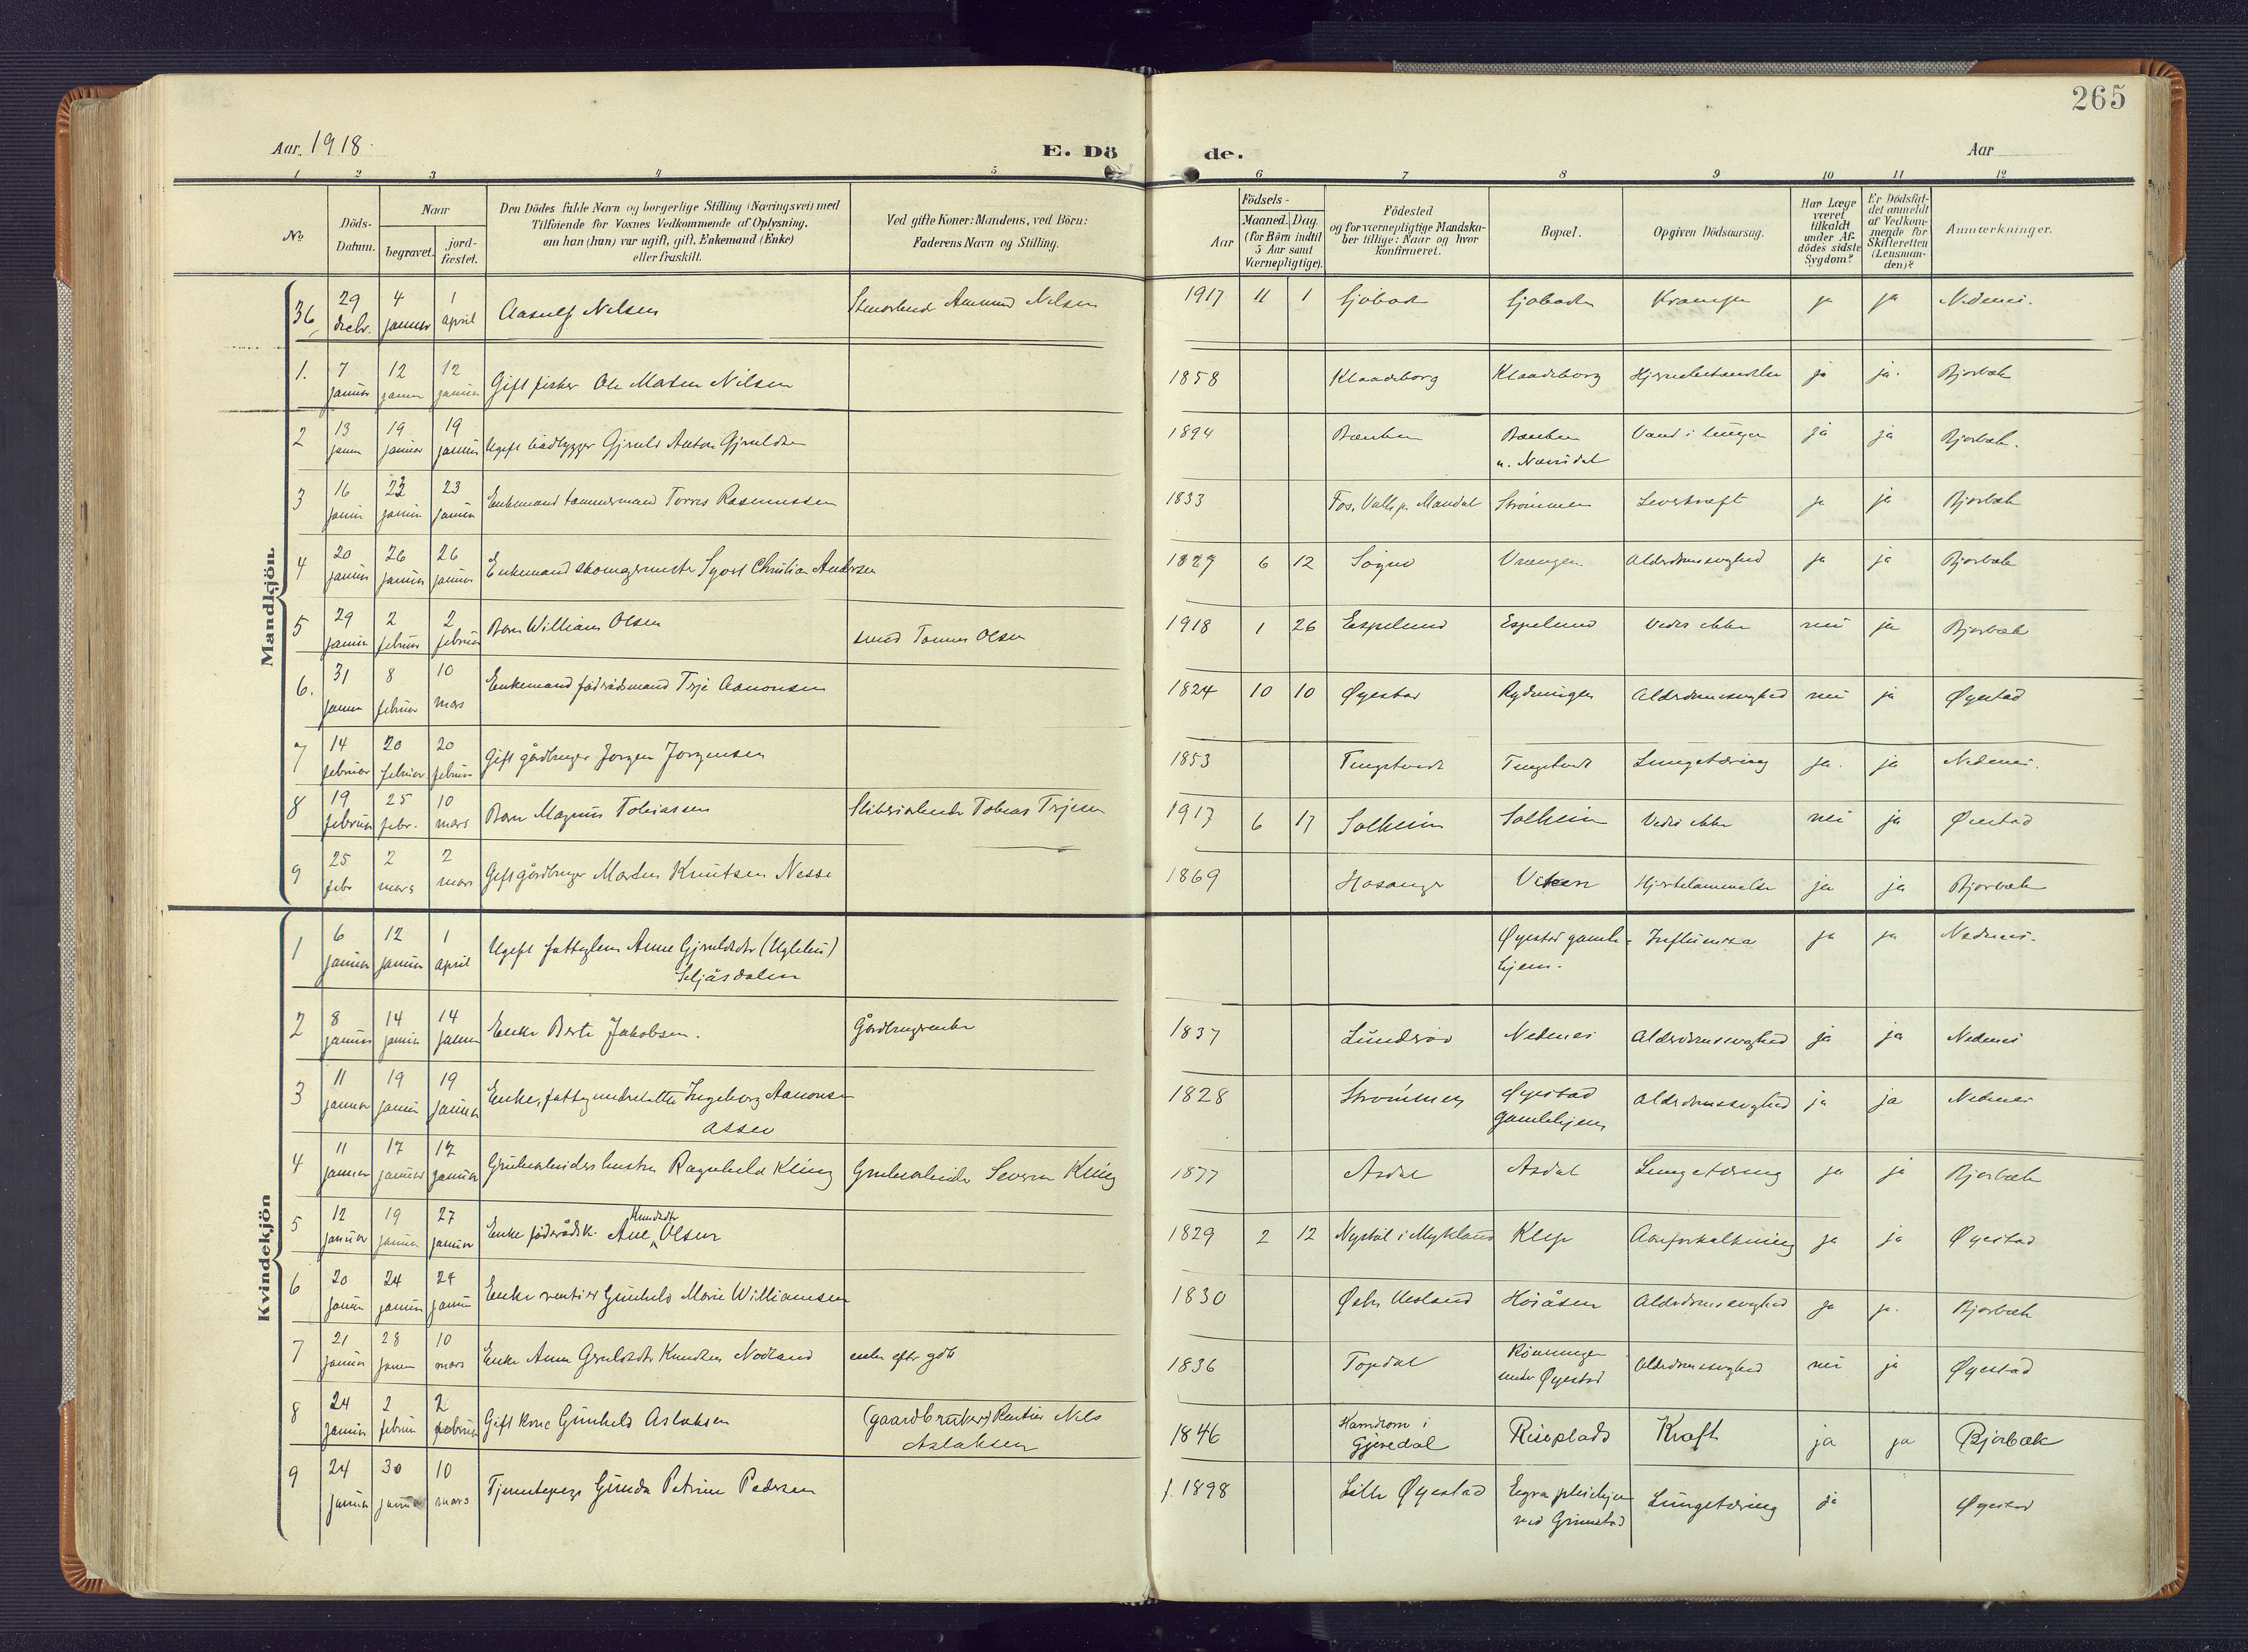 265
Aar 1918.
E. Dö de.
Aar
1 2 3 4 5 6 7 8 9 10 11 12
No
Döds-Datum.
Naar
begravet.
jordfæstet.
Den Dödes fulde Navn og borgerlige Stilling (Næringsvei) med
Tilföiende for Voxnes Vedkommende af Oplysning,
om han (hun) var ugift, gift, Enkemand (Enke)
eller fraskilt.
Ved gifte Koner: Mandens, ved Börn:
Faderens Navn og Stilling.
Födsels-
Aar
Maaned. Dag.
(for Börn indtil
5 Aar samt
Værnepligtige).
Födested
og for værnepligtige Mandskaber tillige: Naar og hvor
konfirmeret.
Bopæl.
Opgiven Dödsaarsag.
Har Læge
været
tilkaldt
under Afdödes sidste
Sygdom?
Er Dödsfaldet anmeldt
af Vedkommende for
Skifteretten
(Lensmanden)?
Anmerkninger.
Mandkjön.
36 29 decbr. 4 januar 1 april Aasulf Nilsen Amund Nilsen 1917 11 1 Krampe ja ja Nedenes.
1. 7 januar 12 januar 12 januar Gift fisker Ole Martin Nilsen 1858 Klaadeborg Klaadeborg ja ja. Bjorbæk
2 13 januar 19 januar 19 januar Ugift baadbygger Gjeruld Anton Gjeruldsen 1894 Vand i lunger ja ja Bjorbæk.
3 16 januar 23 januar 23 januar Enkemand tømmermand Torres Rasmussen 1833 Mandal Strømmen Leverkræft ja ja Bjorbæk
4 20 januar 26 januar 26 januar Enkemand skomagermester Christian Andersen 1827 6 12 Søgne Vrængen Alderdomssvaghed ja ja Bjorbæk
5 29 januar 2 februar 2 februar Barn William Olsen smed Tomas Olsen 1918 1 26 Espelund Espelund Vedes ikke nei ja Bjorbæk
6. 31 januar 8 februar 10 mars Enkemand føderådsmand Terje Aanonsen 1824 10 10 Øyestad Rydningen Alderdomssvaghed nei ja Øyestad
7 14 februar 20 februar 20 februar Gift gårdbruger Jørgen Jørgensen 1853 Tingstveit Tingstveit Lungetæring ja. ja Nedenes.
8 19 februar 25 febr. 10 mars Barn Magnus Tobiassen Tobias Terjesen 1917 6 17 Solheim Solheim Vedes ikke nei ja Øiestad
9 25 febr 2 mars 2 mars Gift gårdbruger Morten Knutsen Nesse 1869 Hosanger Viken Hjertelammelse ja ja Bjorbæk
Kvindekjön
1 6 januar 12 januar 1 april Ugift fattiglem Anne Gjeruldsdtr (Uglelei)
Seljåsdalen Øyestad gamle-
hjem. Influenza ja ja Nedenes.
2 8 januar 14 januar 14 januar Enke Berte Jakobsen. Gårdbrugerenke 1837 Lundeviø Nedenes Alderdomssvaghed ja ja Nedenes
3 11 januar 19 januar 19 januar Enke, fattigunderstøttet Ingeborg Aanonsen
Assev 1828 Strømmen Øyestad
gamlehjem Alderdomssvaghed ja ja Nedenes
4 11 januar 17 januar 17 januar Grubearbeiders hustru Ragnhild Kling Grubearbeider Severin Kling 1877 Asdal Asdal Lungetæring ja ja Bjorbæk
5 12 januar 19 januar 27 januar Enke føderådsk. Ane Knudsdtr Olsen 1829 2 12 Nystøl i Mykland Klep Aareforkalkning ja ja Øyestad
6 20 januar 24 januar 24 januar Enke rentier Gunhild Marie Williamsen 1830 Østre Ueland Høiåsen Alderdomssvaghed ja ja. Bjorbæk
7 21 januar 28 januar 10 mars Enke Anne Gjeruldsdtr Knudsen Nodland enke efter gdb 1836 Topdal Rønningen
under Øyestad Alderdomssvaghed nei ja Øyestad
8 24 januar 2 februar 2 februar Gift kone Gunhild Aslaksen (gaardbruker) Rentier Nils
Aslaksen 1846 Hamdrom i
Gjøvedal Riseplads Kræft ja ja Bjorbæk
9 24 januar 30 januar 10 mars Tjenestepige Gunda Petrine Pedersen f. 1898 Lille Øyestad pleiehjem
ved Grimstad Lungetæring ja Øyestad